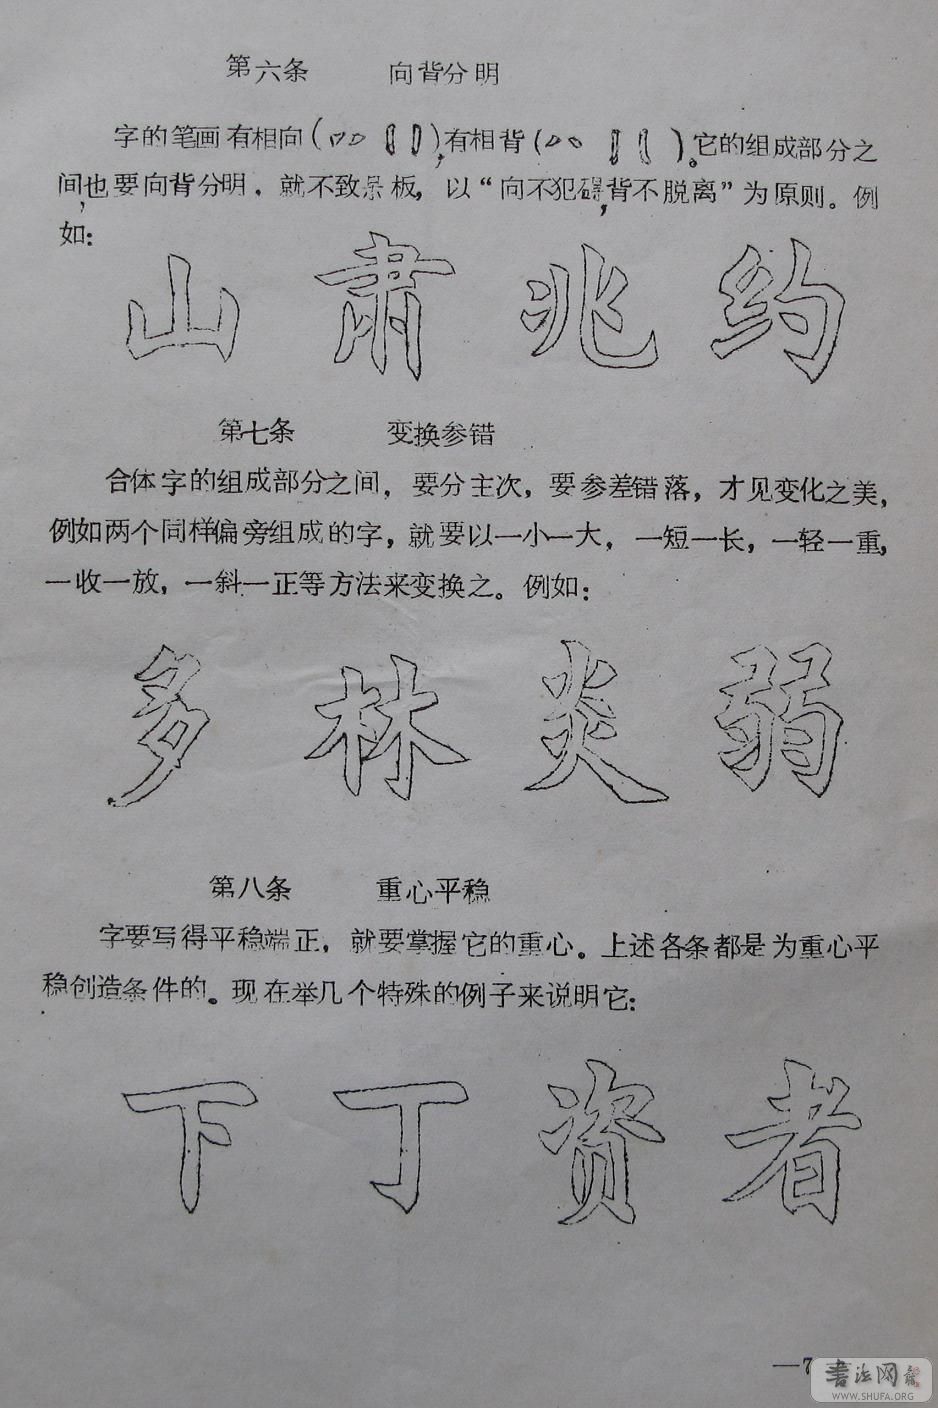 第六条 向背分明
字的笔画有相向( ),有相背( )。它的组成部分之
间,也要向背分明，就不致呆板，以“向不犯碍,背不脱离”为原则。例
如：
山 肃 兆 约
第七条 变换参错
合体字的组成部分之间，要分主次，要参差错落，才见变化之美，
例如两个同样偏旁组成的字，就要以一小一大，一短一长，一轻一重，
一收一放，一斜一正等方法来变换之。例如：
多 林 炎 弱
第八条 重心平稳
字要写得平稳端正，就要掌握它的重心。上述各条都是为重心平
稳创造条件的。现在举几个特殊的例子来说明它：
下 丁 资 者
—7
書法网
WWW.SHUFA.ORG